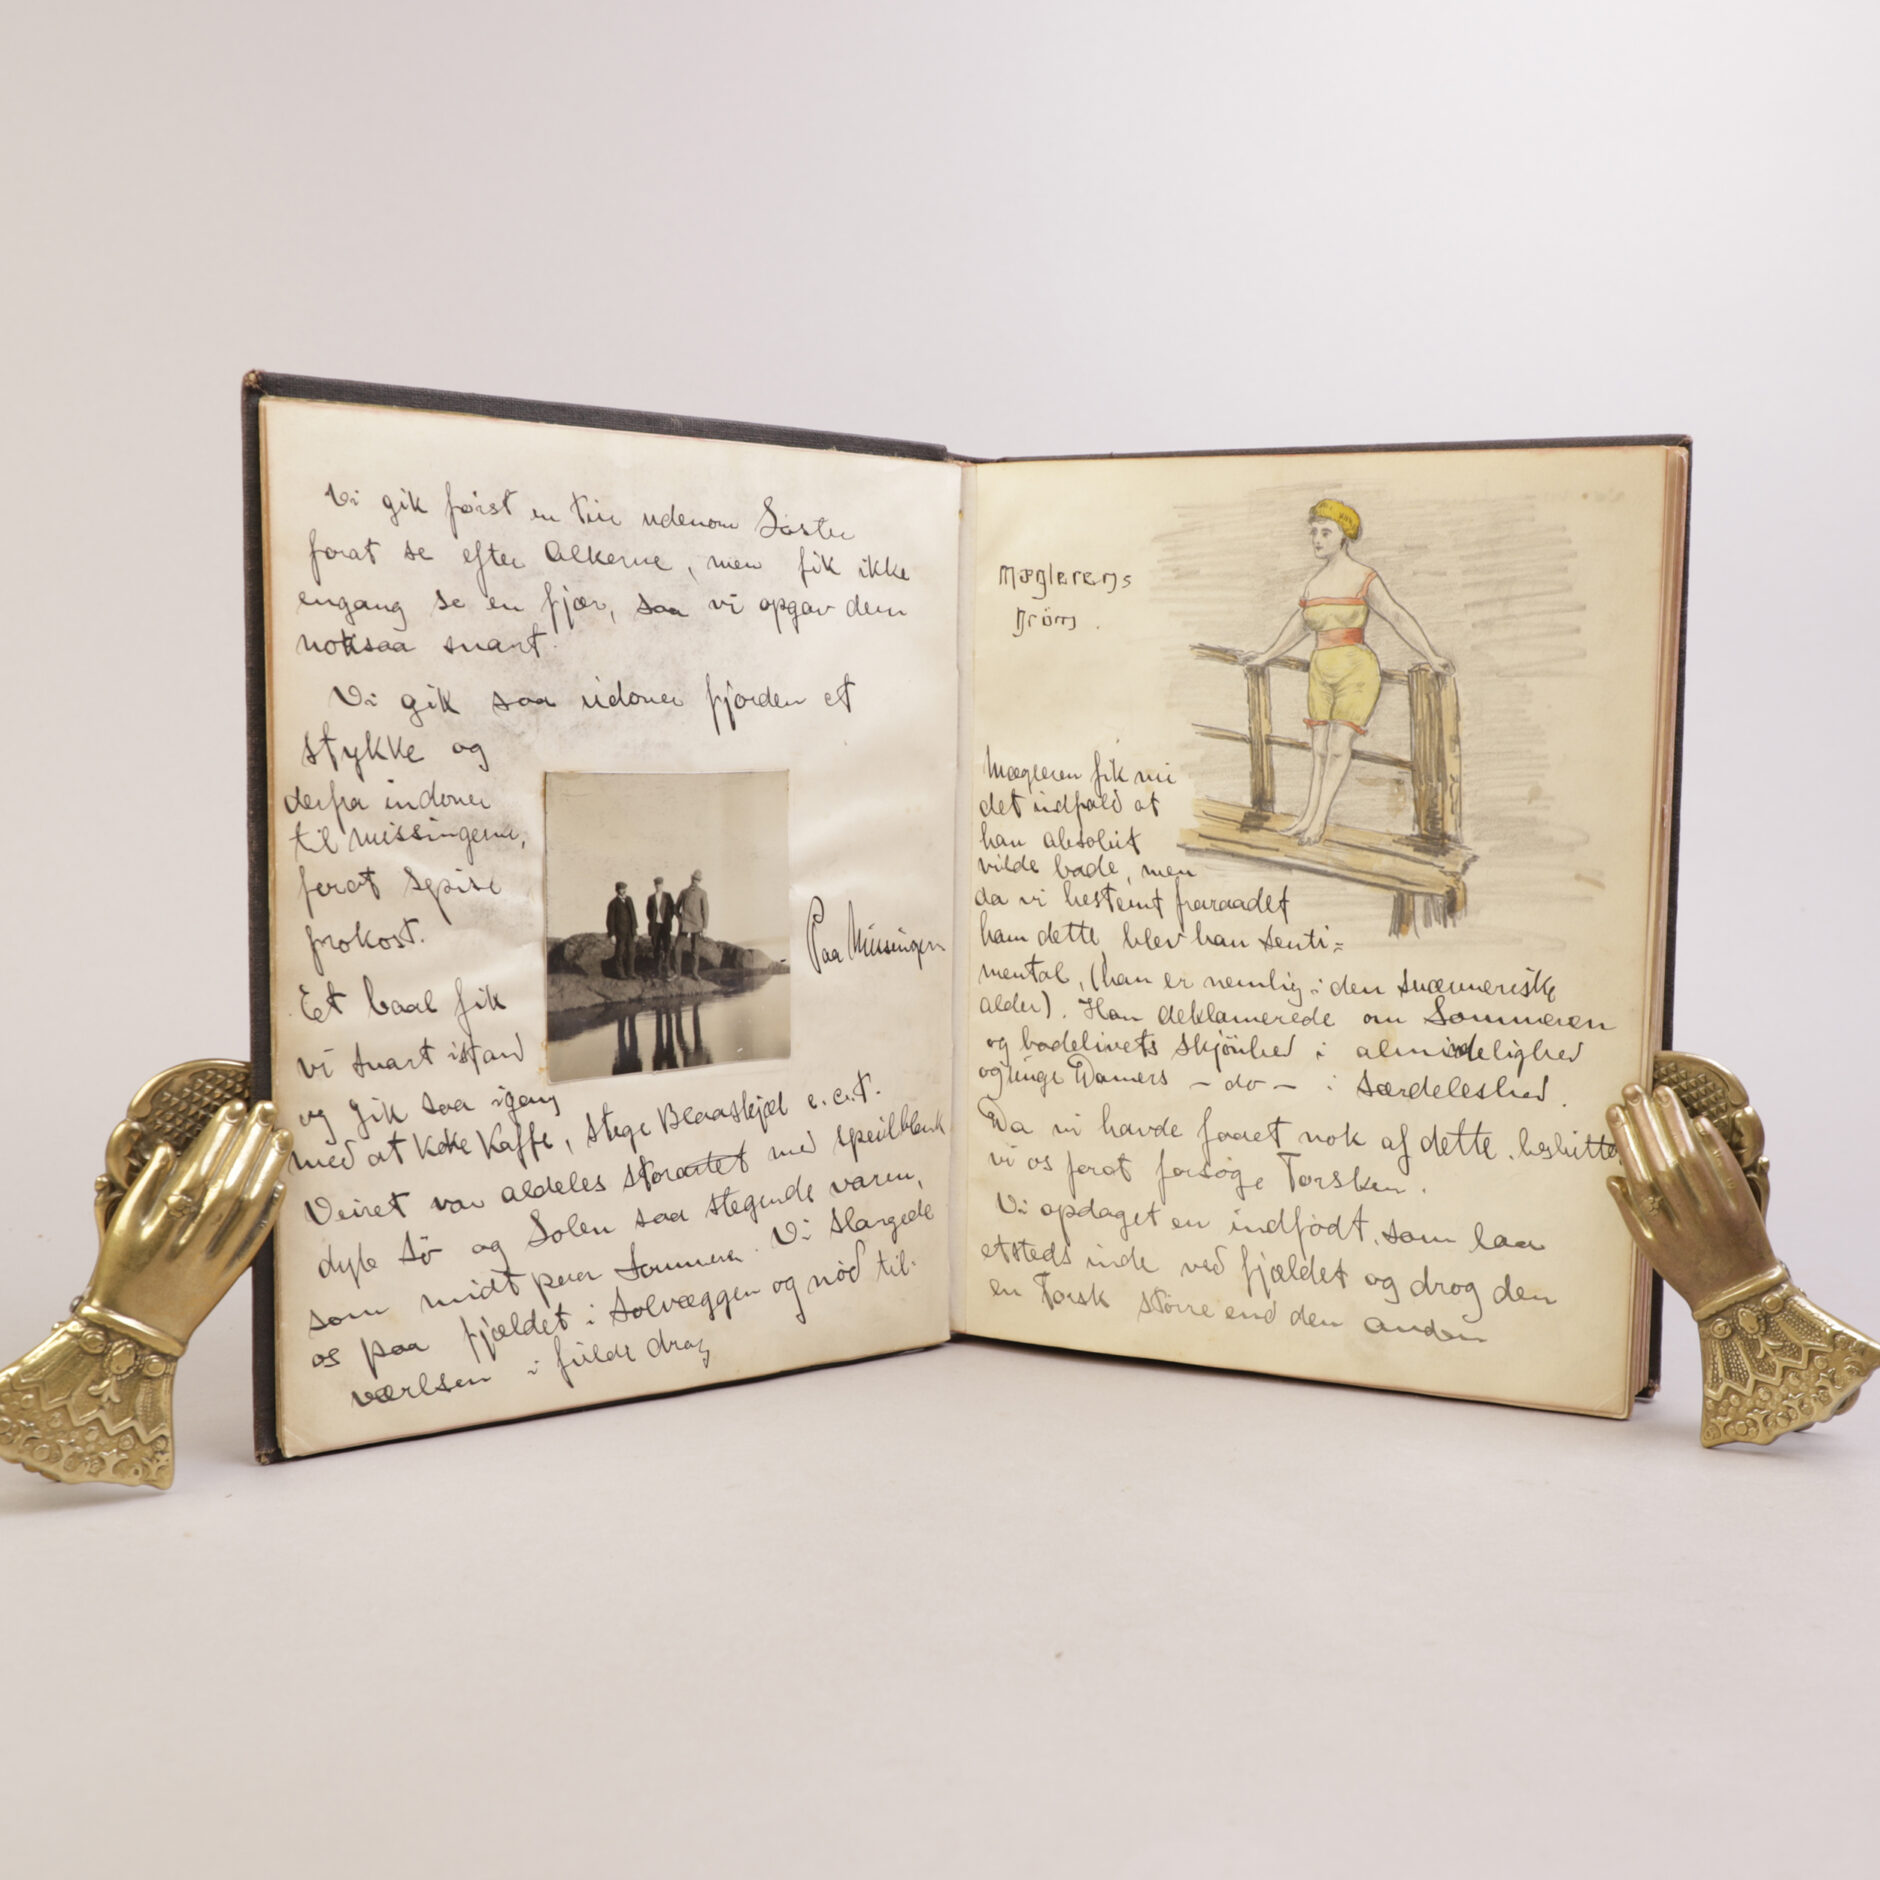 Vi gik først en tur udenom Søster
forat se efter Alkerne, men fik ikke
engang se en fjær, saa vi opgav dem
noksaa snart.
Vi gik saa udover fjorden et
stykke og
derfra indover
til Missingerne,
forat spise
frokost.
Et baal fik
vi snart istand
og gik saa igang
med at koke Kaffe, stege Blaaskjæl e.c.t.
Veiret var aldeles storartet med speilblank
dyb sö og Solen saa stegende varm,
som midt paa Sommeren. Vi slængde
os paa fjeldet i Solvæggen og nöd til-
værlsen i fulde drag
Paa Missingen
Mæglerens
Dröm.
Mægleren fik nu
det indfald at
han absolut
vilde bade, men
da vi bestemt fraraadet
ham dette, blev han senti=
mental, (han er nemlig i den sværmeriske
alder). Han deklamerede om Sommeren
og badelivets skjönhed i almindelighed
og unge Damers - do - i særdeleshed.
Da vi havde faaet nok af dette, beslutte
vi os forat forsöge Torsken.
Vi opdaget en indfödt, som laa
etsteds inde ved fjældet og drog den
en Torsk större end den anden